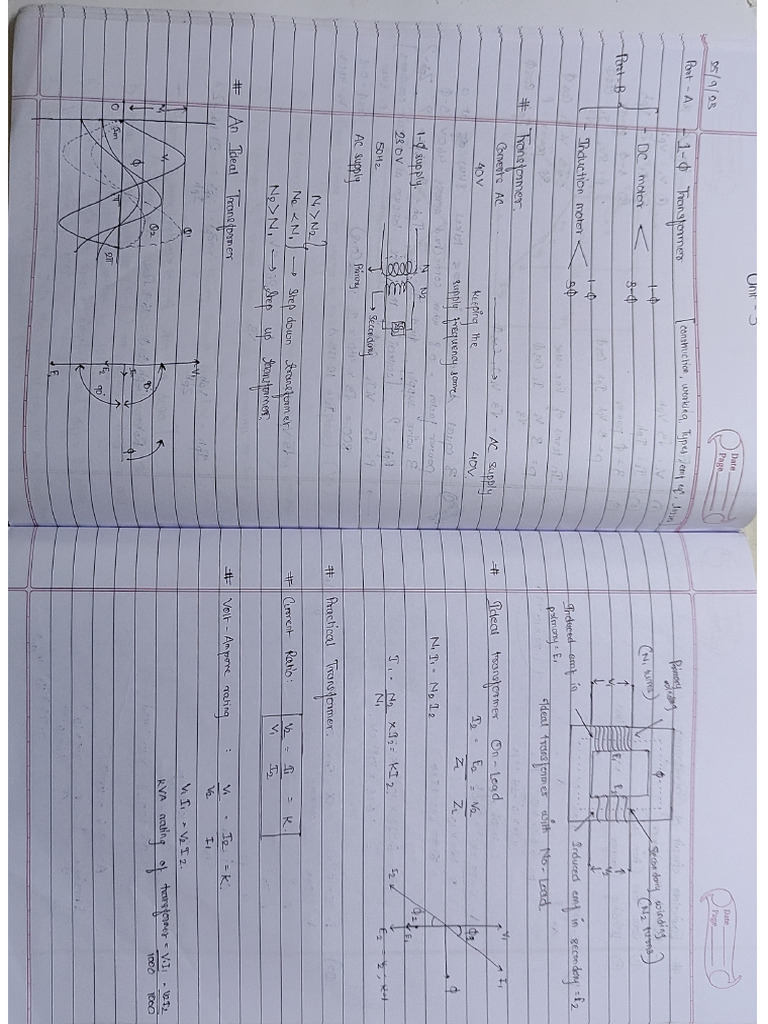 Unit - 3
Date
Page
25/9/23
Part - A - 1-ϕ Transformer [construction, working, Types, emf eqⁿ,
Part - B
- DC motor
1-ϕ
3-ϕ
- Induction motor
1-ϕ
3ϕ
# Transformer.
Converts AC AC supply
40V keeping the 40V
supply frequency same
1-ϕ supply. N1 N2
230V
50Hz → secondary
AC supply Primary
N1 > N2
N2 < N1 → Step down transformer
N2 > N1 → step up transformer.
# An Ideal Transformer
V1
ϕ
ϕ1
O
π
2π
V1
90°
90°
ϕ
E2
E1
Date
Page
Primary winding
(N1 turns)
V1
ϕ
E1
Secondary winding
(N2 turns)
V2
Induced emf in
primary = E1
Induced emf in secondary = E2
Ideal transformer with No-Load.
# Ideal transformer On-Load
I2 = E2 / ZL = V2 / ZL
N1 I1 = N2 I2
I1 = N2 / N1 × I2 = KI2
V1
I1
ϕ2
ϕ
ϕ2
E1
I2
E2 = V2, K=1
# Practical Transformer.
# Current Ratio: V2 / V1 = I1 / I2 = K
# Volt - Ampere rating : V1 / V2 = I2 / I1 = K
V1 I1 = V2 I2.
KVA rating of transformer = V1 I1 / 1000 = V2 I2 / 1000